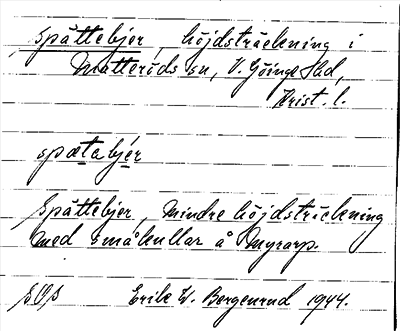 spättebjer, höjdsträckning i
Matteröds sn, V. Göinge hd,
Krist. l.
spætabjér
Spättebjer, mindre höjdsträckning
med småkullar å Myrarp.
Erik W. Bergenrud 1944.